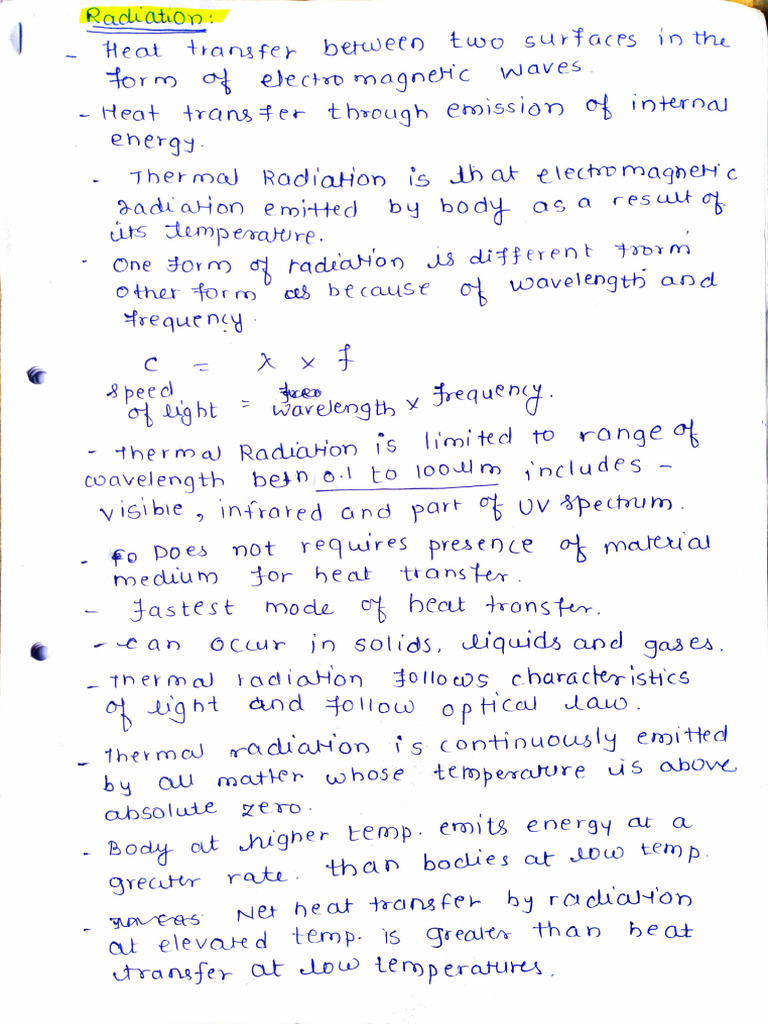 Radiation:
- Heat transfer between two surfaces in the
form of electromagnetic waves.
- Heat transfer through emission of internal
energy.
- Thermal Radiation is that electromagnetic
radiation emitted by body as a result of
its temperature.
- One form of radiation is different from
other form as because of wavelength and
frequency.
c = λ x f
speed of light = wavelength x frequency.
- Thermal Radiation is limited to range of
wavelength betn 0.1 to 100 μm includes -
visible, infrared and part of UV spectrum.
- Does not requires presence of material
medium for heat transfer.
- fastest mode of heat transfer.
- can occur in solids, liquids and gases.
- Thermal radiation follows characteristics
of light and follow optical law.
- Thermal radiation is continuously emitted
by all matter whose temperature is above
absolute zero.
- Body at higher temp. emits energy at a
greater rate. than bodies at low temp.
- Net heat transfer by radiation
at elevated temp. is greater than heat
transfer at low temperatures.